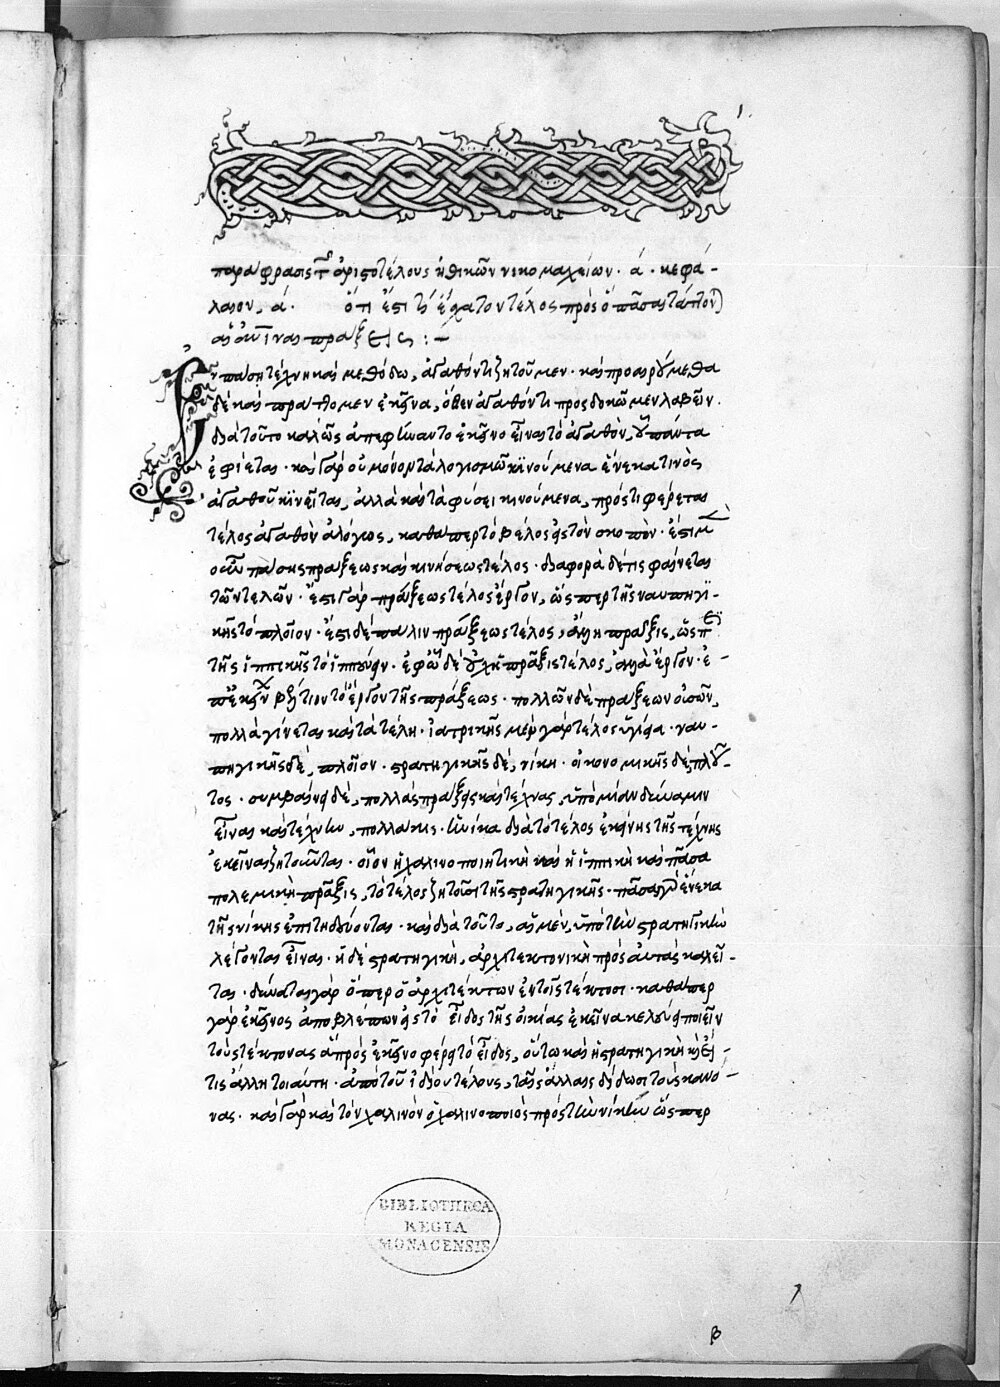 παράφρασις τοῦ ἀριστοτέλους ἠθικῶν νικομαχείων · ά · κεφά -
λαιον, ά · ὅτι ἔστι τὶ ἔσχατον τέλος πρὸς ὃ πᾶσαι τεί
πράξεις : -
ἐν πάσῃ τέχνῃ καὶ μεθόδω, ἀγαθόν τι ζητοῦμεν · καὶ προαιρούμεθα
δὲ καὶ πράττομεν ἐκεῖνα, ὅθεν ἀγαθόν τι προσδοκῶμεν λαβεῖν ·
διὰ τοῦτο καλῶς ἀπεφίναντο ἐκεῖνο εἶναι τὸ ἀγαθὸν, οὗ πάντα
ἐφίεται · καὶ γὰρ οὐ μόνον τὰ λογισμῶ κινούμενα ἕνεκα τινὸς
ἀγαθοῦ κινεῖται, ἀλλὰ καὶ τὰ φύσει κινούμενα, πρός τι φέρεται
τέλος ἀγαθὸν ἀλόγως, καθάπερ τὸ βέλος εἰς τὸν σκοπόν · ἔστι μὲν
οὖν πάσης πράξεως καὶ κινήσεως τέλος · διαφορὰ δέ τις φαίνεται
τῶν τελῶν · ἔστι γὰρ πράξεως τέλος ἔργον, ὥσπερ τῆς ναυπηγι -
κῆς τὸ πλοῖον · ἔστι δὲ πάλιν πράξεως τέλος, ἄλλη πρᾶξις, ὥσπερ
τῆς ἱππικῆς τὸ ἱππεύειν · ἐφ' ὧν δὲ οὐκ ἡ πρᾶξις τέλος, ἀλλὰ ἔργον · ἐ -
π' ἐκείνων βέλτιον τὸ ἔργον τῆς πράξεως · πολλῶν δὲ πράξεων οὐσῶν,
πολλὰ γίνεται καὶ τὰ τέλη · ἰατρικῆς μὲν γὰρ τέλος ὑγίεια · ναυ -
πηγικῆς δέ, πλοῖον · στρατηγικῆς δέ, νίκη · οἰκονομικῆς δὲ, πλοῦ -
τος · συμβαίνει δέ, πολλὰς πράξεις καὶ τέχνας, ὑπὸ μίαν δύναμιν
εἶναι καὶ τέχνην, πολλάκις · ἡνίκα διὰ τὸ τέλος ἐκείνης τῆς τέχνης
ἐκεῖναι ζητοῦνται · οἷον ἡ χαλινοποιητικὴ καὶ ἡ ἱππικὴ καὶ πᾶσα
πολεμικὴ πρᾶξις, τὸ τέλος ζητοῦσι τῆς στρατηγικῆς · πᾶσαι γὰρ ἕνεκα
τῆς νίκης ἐπιτηδεύονται · καὶ διὰ τοῦτο, αἱ μὲν, ὑπὸ τὴν στρατηγικὴν
λέγονται εἶναι · ἡ δὲ στρατηγικὴ, ἀρχιτεκτονικὴ πρὸς αὐτὰς καλεῖ -
ται · δύναται γὰρ ὅπερ ὁ ἀρχιτέκτων ἐν τοῖς τέκτοσι · καθάπερ
γὰρ ἐκεῖνος ἀποβλέπων εἰς τὸ εἶδος τῆς οἰκίας ἐκεῖνα κελεύει ποιεῖν
τοὺς τέκτονας ἃ πρὸς ἐκεῖνο φέρει τὸ εἶδος, οὕτω καὶ ἡ στρατηγικὴ κἂν εἴ -
τις ἄλλη τοιαύτη · ἀπὸ τοῦ ἰδίου τέλους, ταῖς ἄλλαις δίδωσι τοὺς κανό -
νας · καὶ γὰρ καὶ τὸν χαλινὸν ὁ χαλινοποιὸς πρὸς τὴν νίκην ὥσπερ
BIBLIOTHECA
REGIA
MONACENSIS
β